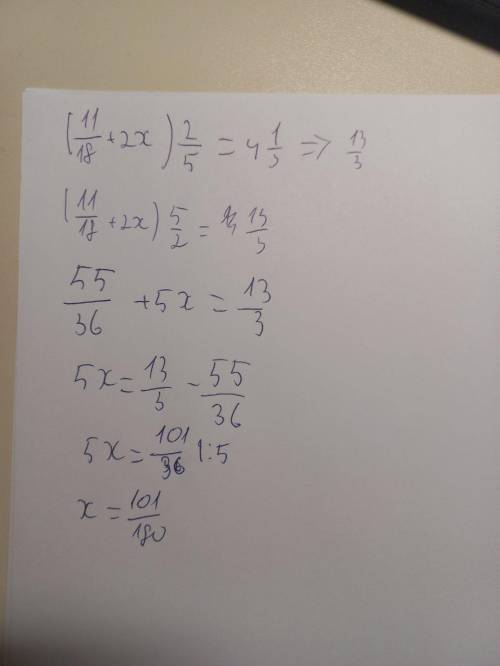 (11/18 + 2x) 2/5 = 4 1/3 => 13/3
(11/18 + 2x) 5/2 = 13/3
55/36 + 5x = 13/3
5x = 13/3 - 55/36
5x = 101/36 |:5
x = 101/180